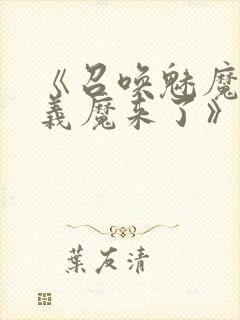 《召唤魅魔
義魔来了》
葉友清